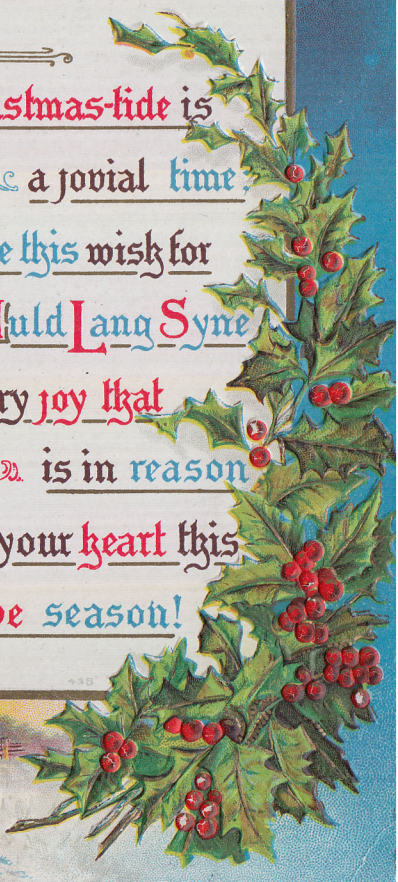 stmas-tide is
a jovial time,
e this wish for
Auld Lang Syne
ry joy that
is in reason
your heart this
e season!
435